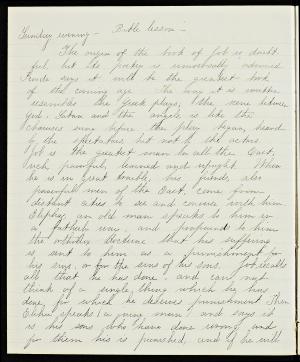 Sunday evening – Bible lesson –
The origin of the book of Job is doubt-
ful, but its poetry is universally admired
Froude says it will be the greatest book
of the coming age. The way it is written
resembles the Greek plays, the scene between
God, Satan and the angels is like the
choruses sung before the play began, heard
by the spectators but not by the actors
Job is the greatest man in all the East,
rich, powerful, learned and upright. When
he is in great trouble, his friends, also
powerful men of the East, come from
distant cities to see and converse with him.
Eliphaz, an old man speaks to him in
a fatherly way, and expounds to him
the orthodox doctrine that his suffering
is sent to him as a punishment for
his sins, or for the sins of his sons. Job recalls
all that he has done, and can not
think of a single thing which he has
done, for which he deserves punishment. Then
Elihu speaks (a young man) and says it
is his sons who have done wrong and
for them he is punished, and if he will